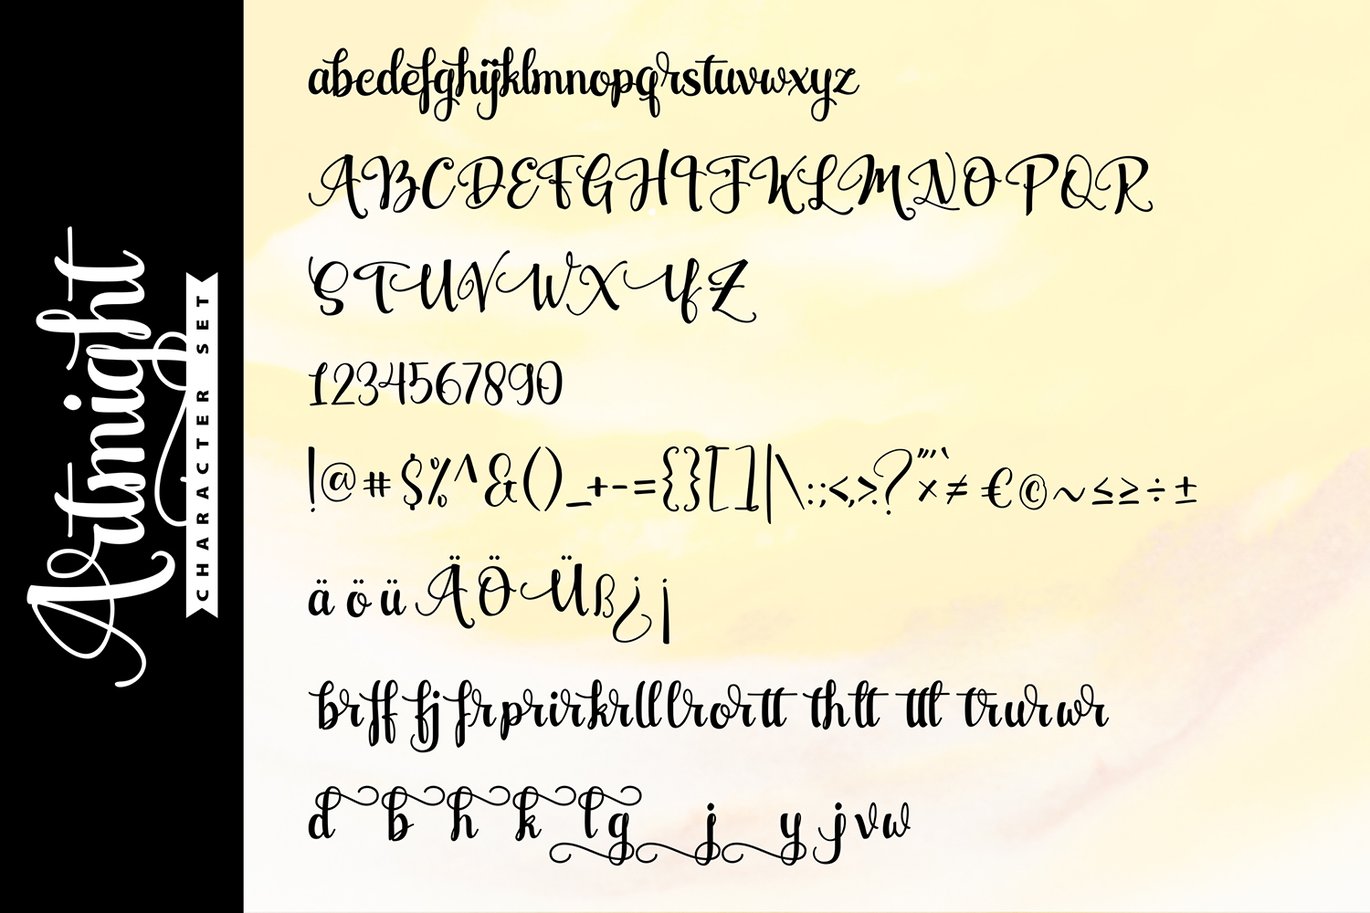 Artmight
CHARACTER SET
abcdefghijklmnopqrstuvwxyz
ABCDEFGHIJKLMNOPQR
STUVWXYZ
1234567890
!@#$%^&()_+-={}[]|\:;<,>.?"'`×≠€©~≤≥÷±
äöüÄÖÜß¿¡
brff fj frprirkrlllrortt th lt ttt trurwr
d b h k l g j y j v w